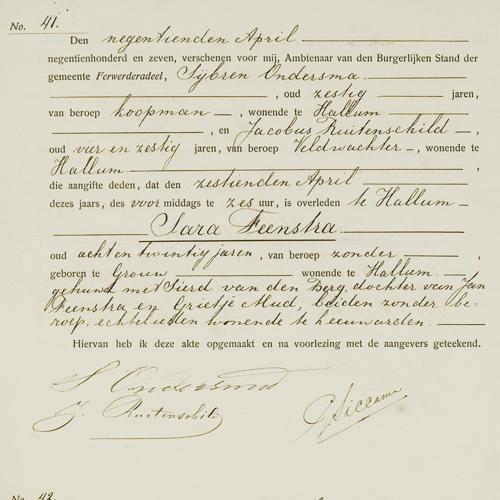 No. 41.
Den negentienden April
negentienhonderd en zeven, verschenen voor mij, Ambtenaar van den Burgerlijken Stand der
gemeente Ferwerderadeel, Sijbren Ondersma
, oud zestig jaren,
van beroep koopman —, wonende te Hallum
, en Jacobus Ruitenschild —,
oud vier en zestig jaren, van beroep Veldwachter —, wonende te
Hallum
die aangifte deden, dat den zestienden April
dezes jaars, des voormiddags te zes uur, is overleden te Hallum —
Sara Feenstra
oud acht en twintig jaren, van beroep zonder
geboren te Grouw wonende te Hallum —,
gehuwd met Sierd van den Berg, dochter van Jan
Feenstra en Grietje Mud, beiden zonder be-
roep, echtelieden wonende te Leeuwarden.
Hiervan heb ik deze akte opgemaakt en na voorlezing met de aangevers geteekend.
S Ondersma
J. Ruitenschild
Siccama
No. 42.